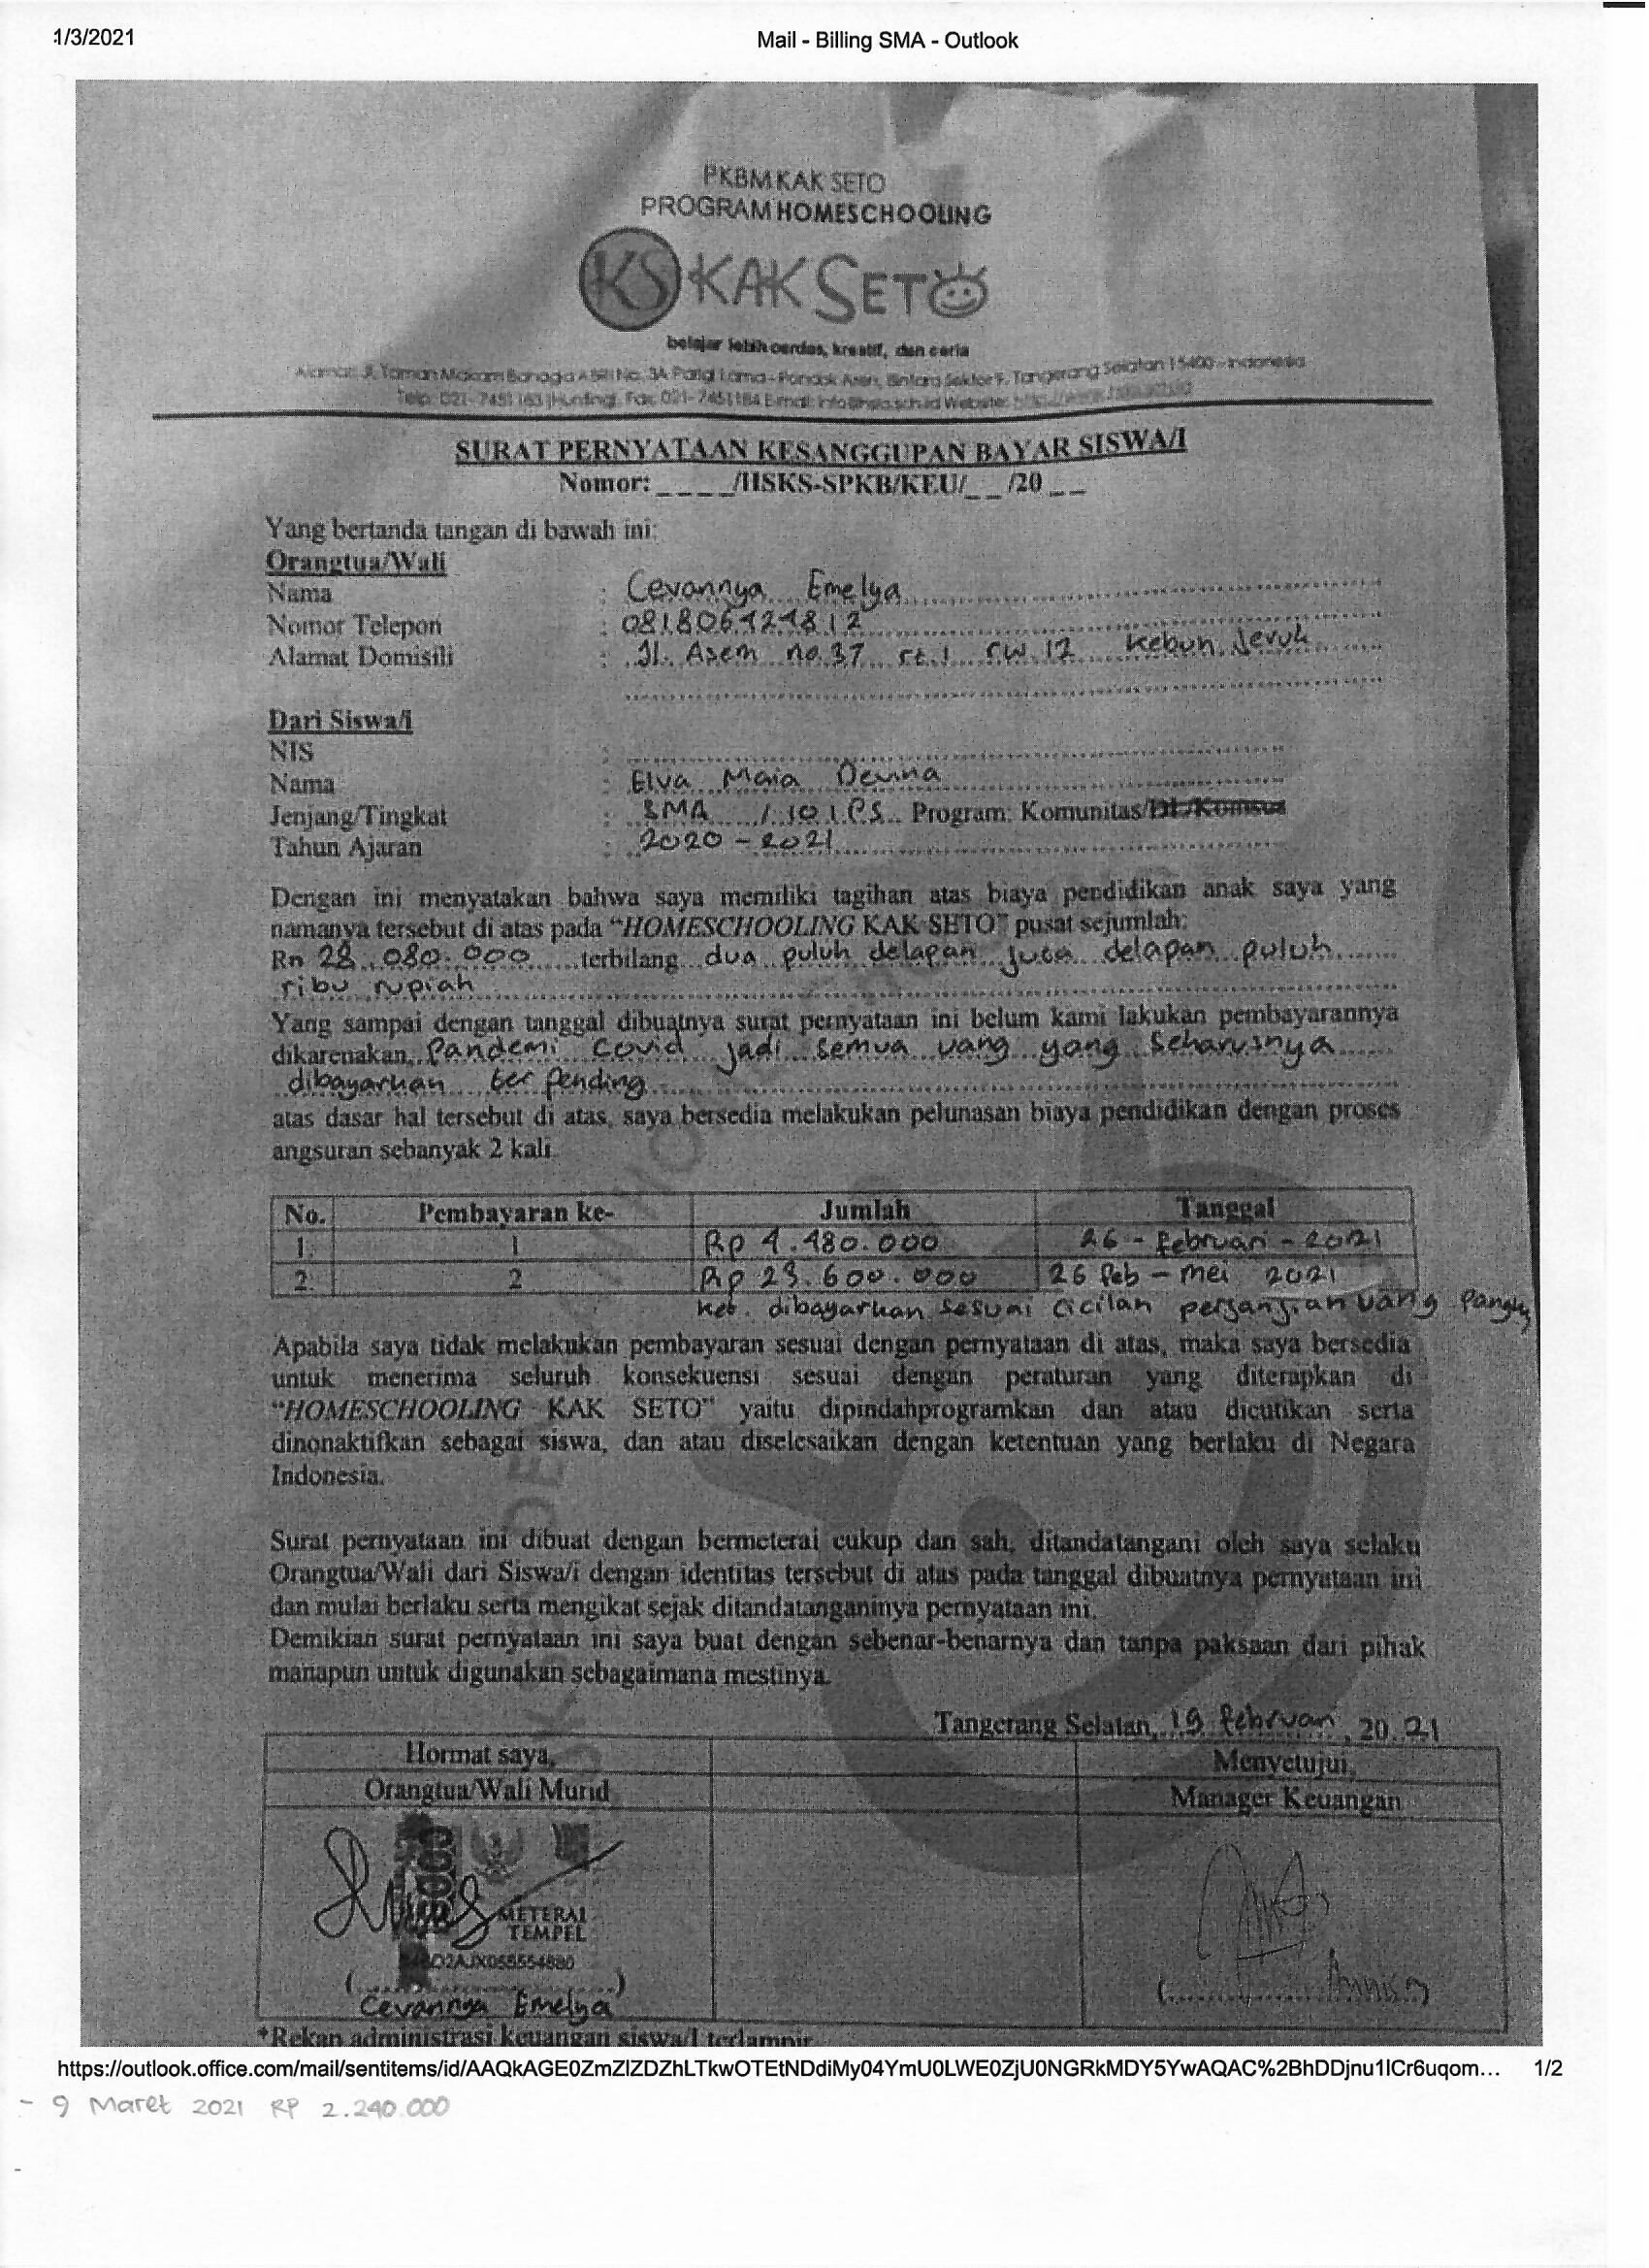 1/3/2021
Mail - Billing SMA - Outlook
PKBM KAK SETO
PROGRAM HOMESCHOOLING
KS KAK SETO
belajar lebih cerdas, kreatif, dan ceria
SURAT PERNYATAAN KESANGGUPAN BAYAR SISWA/I
Nomor: _ _ _ _/HSKS-SPKB/KEU/_ _ /20 _ _
Yang bertanda tangan di bawah ini:
Orangtua/Wali
Nama : Cevannya Emelya
Nomor Telepon :
Alamat Domisili : Jl. Asem no.37 rt.1 rw.12 Kebun Jeruk
Dari Siswa/i
NIS :
Nama : Elva Maia
Jenjang/Tingkat : SMA / 10 IPS Program: Komunitas/DL/Komsus
Tahun Ajaran : 2020 - 2021
Dengan ini menyatakan bahwa saya memiliki tagihan atas biaya pendidikan anak saya yang
namanya tersebut di atas pada "HOMESCHOOLING KAK SETO" pusat sejumlah:
Rp 28.080.000 terbilang dua puluh delapan juta delapan puluh
ribu rupiah
Yang sampai dengan tanggal dibuatnya surat pernyataan ini belum kami lakukan pembayarannya
dikarenakan Pandemi Covid jadi semua uang yang seharusnya
dibayarkan ter pending
atas dasar hal tersebut di atas, saya bersedia melakukan pelunasan biaya pendidikan dengan proses
angsuran sebanyak 2 kali.
No. Pembayaran ke- Jumlah Tanggal
1. 1 Rp 4.480.000 26 - februari - 2021
2. 2 Rp 23.600.000 26 feb - mei 2021
ket. dibayarkan sesuai cicilan perjanjian uang
Apabila saya tidak melakukan pembayaran sesuai dengan pernyataan di atas, maka saya bersedia
untuk menerima seluruh konsekuensi sesuai dengan peraturan yang diterapkan di
"HOMESCHOOLING KAK SETO" yaitu dipindahprogramkan dan atau dicutikan serta
dinonaktifkan sebagai siswa, dan atau diselesaikan dengan ketentuan yang berlaku di Negara
Indonesia.
Surat pernyataan ini dibuat dengan bermeterai cukup dan sah, ditandatangani oleh saya selaku
Orangtua/Wali dari Siswa/i dengan identitas tersebut di atas pada tanggal dibuatnya pernyataan ini
dan mulai berlaku serta mengikat sejak ditandatanganinya pernyataan ini.
Demikian surat pernyataan ini saya buat dengan sebenar-benarnya dan tanpa paksaan dari pihak
manapun untuk digunakan sebagaimana mestinya.
Tangerang Selatan, 19 februari, 20 21
Hormat saya, Menyetujui,
Orangtua/Wali Murid Manager Keuangan
METERAI
TEMPEL
Cevannya Emelya
*Rekap administrasi keuangan siswa/I terlampir
https://outlook.office.com/mail/sentitems/id/AAQkAGE0ZmZlZDZhLTkwOTEtNDdiMy04YmU0LWE0ZjU0NGRkMDY5YwAQAC%2BhDDjnu1lCr6uqom... 1/2
- 9 Maret 2021 RP 2.240.000